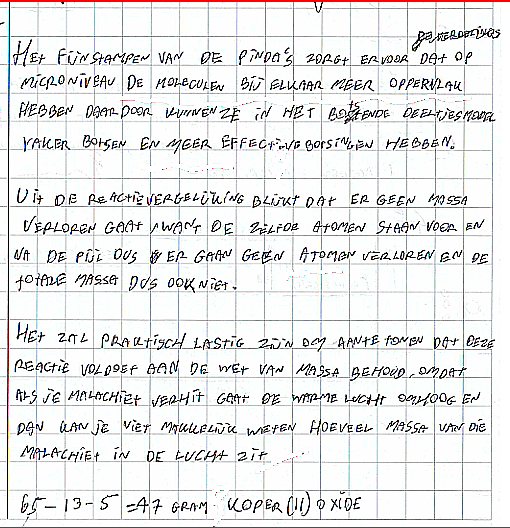 HET FIJNSTAMPEN VAN DE PINDA'S ZORGT ERVOOR DAT OP
MICRONIVEAU DE MOLECULEN BIJ ELKAAR MEER OPPERVLAK
HEBBEN DAARDOOR KUNNEN ZE IN HET BOTSENDE DEELTJESMODEL
VAKER BOTSEN EN MEER EFFECTIVE BOTSINGEN HEBBEN.
UIT DE REACTIEVERGELIJKING BLIJKT DAT ER GEEN MASSA
VERLOREN GAAT, WANT DE ZELFDE ATOMEN STAAN VOOR EN
NA DE PIJL DUS ER GAAN GEEN ATOMEN VERLOREN EN DE
TOTALE MASSA DUS OOK NIET.
HET ZAL PRAKTISCH LASTIG ZIJN OM AAN TE TONEN DAT DEZE
REACTIE VOLDOET AAN DE WET VAN MASSA BEHOUD, OMDAT
ALS JE MALACHIET VERHIT GAAT DE WARME LUCHT OMHOOG EN
DAN KAN JE NIET MAKKELIJK WETEN HOEVEEL MASSA VAN DIE
MALACHIET IN DE LUCHT ZIT
65-13-5 = 47 GRAM KOPER(II) OXIDE